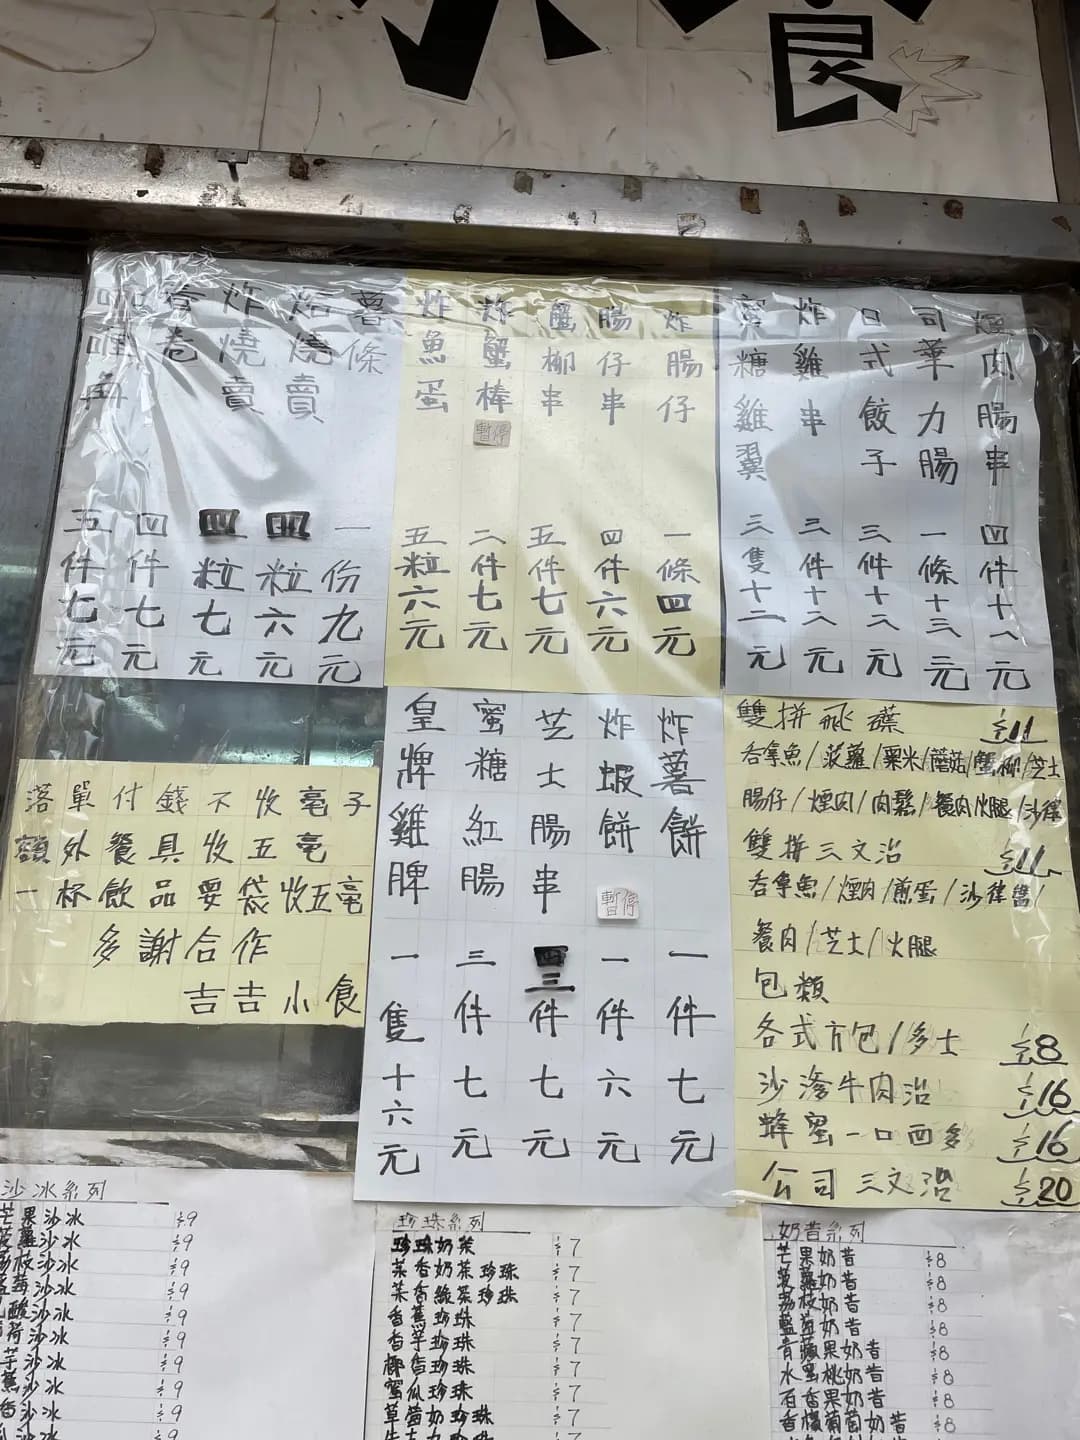 小食
煙肉腸串 四件十八元
司華力腸 一條十三元
日式餃子 三件十八元
炸雞串 三件十八元
蜜糖雞翼 三隻十二元
炸腸仔 一條四元
腸仔串 四件六元
蟹柳串 五件七元
炸蟹棒 暫停 二件七元
炸魚蛋 五粒六元
薯條 一份九元
焗燒賣 四粒六元
炸燒賣 四粒七元
春卷 四件七元
咖喱角 五件七元
炸薯餅 一件七元
炸蝦餅 暫停 一件六元
芝士腸串 三件七元
蜜糖紅腸 三件七元
皇牌雞脾 一隻十六元
落單付錢不收毫子
額外餐具收五毫
一杯飲品要袋收五毫
多謝合作
吉吉小食
雙拼飛碟 $11
吞拿魚/菠蘿/粟米/蘑菇/蟹柳/芝士
腸仔/煙肉/肉鬆/餐肉/火腿/沙律
雙拼三文治 $11
吞拿魚/煙肉/煎蛋/沙律醬/
餐肉/芝士/火腿
包類
各式方包/多士 $8
沙嗲牛肉治 $16
蜂蜜一口西多 $16
公司三文治 $20
沙冰系列
芒果沙冰 $9
菠蘿沙冰 $9
荔枝沙冰 $9
藍莓沙冰 $9
乳酸沙冰 $9
薄荷沙冰 $9
芋沙冰 $9
蕉沙冰 $9
香沙冰 $9
沙冰 $9
珍珠系列
珍珠奶茶 $7
茉香奶茶珍珠 $7
茉香綠茶珍珠 $7
香蕉珍珠 $7
香芋珍珠 $7
椰香珍珠 $7
蜜瓜珍珠 $7
草莓奶珍珠 $7
奶昔系列
芒果奶昔 $8
菠蘿奶昔 $8
荔枝奶昔 $8
藍莓奶昔 $8
青蘋果奶昔 $8
水蜜桃奶昔 $8
百香果奶昔 $8
香檬葡萄奶昔 $8